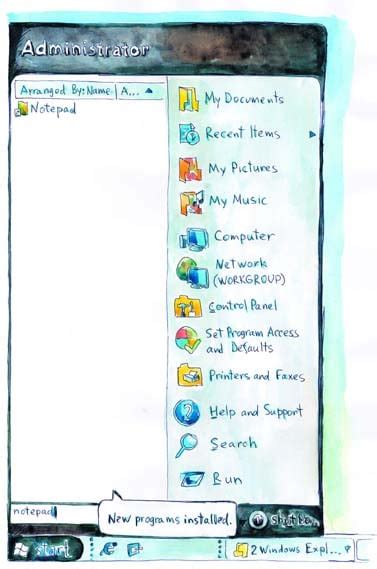 Administrator
Arranged By: Name A...
Notepad
My Documents
Recent Items
My Pictures
My Music
Computer
Network
(WORKGROUP)
Control Panel
Set Program Access
and Defaults
Printers and Faxes
Help and Support
Search
Run
notepad
New programs installed.
start
2 Windows Expl...